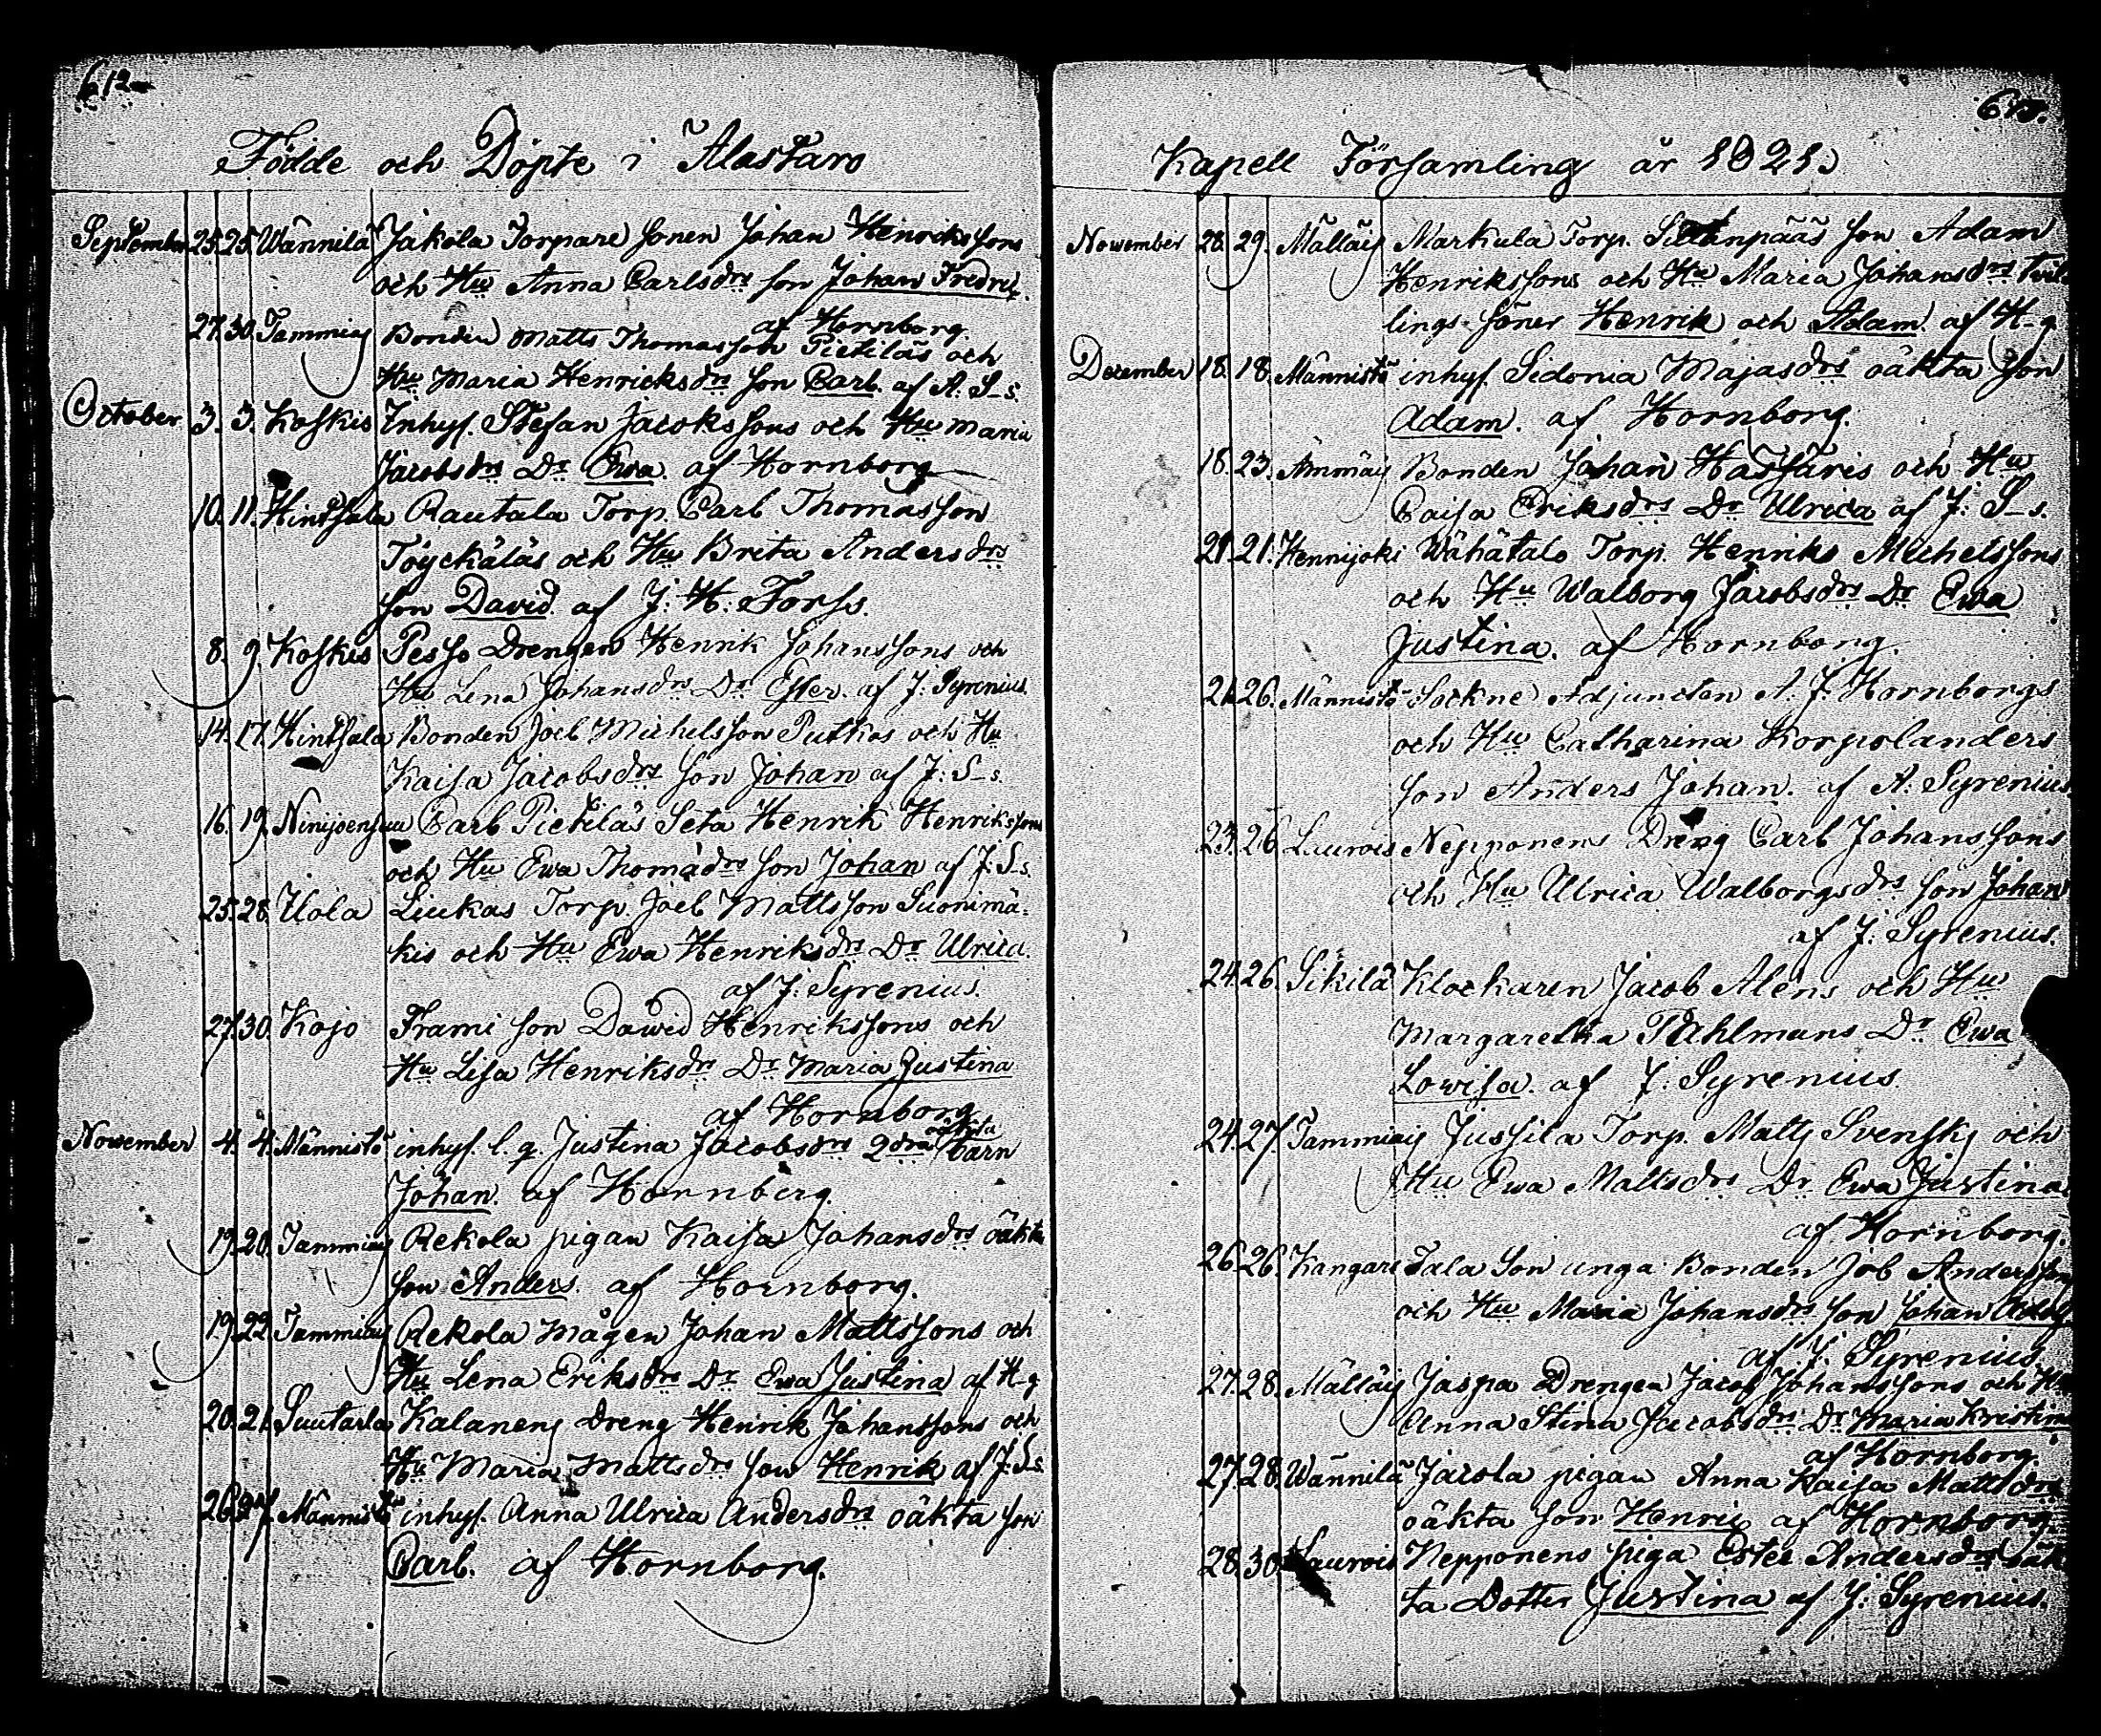 612
Födde och Döpte i Alastaro
September 25. 25. Wännilä Jakola Torpare Sonen Johan Henrikssons
och Hu Anna Carlsdrs son Johan Fredric
af Hornborg.
27. 30. Tammiaj Bonden Matts Thomasson Pietiläs och
Hu Maria Henricksdrs son Carl af A. S-s.
October 3. 3. Koskis Inhys. Stefan Jacobssons och Hu Maria
Jacobsdrs Dr Ewa af Hornborg
10. 11. Hintsala Rautala Torp. Carl Thomasson
Töyckäläs och Hu Brita Andersdrs
son David af J: H: Forss.
8. 9. Koskis Pesso Drengen Henrik Johanssons och
Hu Lena Johansdrs Dr Ester. af J: Syrenius.
14. 17. Hintsala Bonden Joel Michelsson Putkas och Hu
Kaisa Jacobsdrs son Johan af J: S-s.
16. 19. Ninijoensuu Carl Pietiläs Seta Henrik Henrikssons
och Hu Ewa Thomädrs son Johan af J: S-s.
25. 28. Uola Liukas Torp. Joel Mattsson Suonimä-
kis och Hu Ewa Henriksdrs Dr Ulrica.
af J: Syrenius.
27. 30. Kojo Frami son Dawid Henrikssons och
Hu Lisa Henriksdrs Dr Maria Justina
af Hornborg
November 4. 4. Männistö inhys. l. q. Justina Jacobsdrs 2dra oäkta barn
Johan. af Hornberg.
19. 20. Tammiaj Rekola pigan Kaisa Johansdrs oäkta
son Anders. af Hornborg.
19. 22. Tammiaj Rekola Mågen Johan Mattssons och
Hu Lena Eriksdrs Dr Ewa Justina af H-g
20. 21. Suutarla Kalanens Dreng Henrik Johanssons och
Hu Maria Mattsdrs son Henrik af J: S-s.
26. 27. Männistö inhys. Anna Ulrica Andersdrs oäkta son
Carl. af Hornborg.
613.
Kapell Församling år 1821.
November 28. 29. Mälläis Markula Torp. Sillanpääs son Adam
Henrikssons och Hu Maria Johansdrs tvil
lings söner Henrik och Adam. af H-g.
December 18. 18. Männistö inhys. Sidonia Majasdrs oäkta son
Adam. af Hornborg.
18. 23. Ämmäis Bonden Johan Hassaris och Hu
Caisa Eriksdrs Dr Ulrica af J: S-s.
21. 21. Hennijoki Wähätalo Torp. Henriks Michelssons
och Hu Walborg Jacobsdrs Dr Ewa
Justina. af Hornborg.
21. 26. Männistö Sockne Adjuncten A. J. Hornborgs
och Hu Catharina Korpolanders
son Anders Johan. af A. Syrenius.
23. 26. Laurois Nepponens Dreng Carl Johanssons
och Hu Ulrica Walborgsdrs son Johan
af J: Syrenius.
24. 26. Sikilä Klockaren Jacob Alens och Hu
Margaretha Pahlmans Dr Ewa
Lowisa. af J: Syrenius
24. 27. Tammiais Jussila Torp. Matts Svensks och
Hu Ewa Mattsdrs Dr Ewa Justina
af Hornborg.
26. 26. Kangare Tala Son unga Bonden Job Anderssons
och Hu Maria Johansdrs son Johan Adolf
af J: Syrenius
27. 28. Mälläis Jaspa Drengen Jacob Johanssons och Hu
Anna Stina Jacobsdrs Dr Maria Kristina
af Hornborg.
27. 28. Wännilä Jacola pigan Anna Kaisa Mattsdrs
oäkta son Henric af Hornborg.
28. 30. Laurois Nepponens piga Ester Andersdrs oäk
ta Dotter Justina af J: Syrenius.